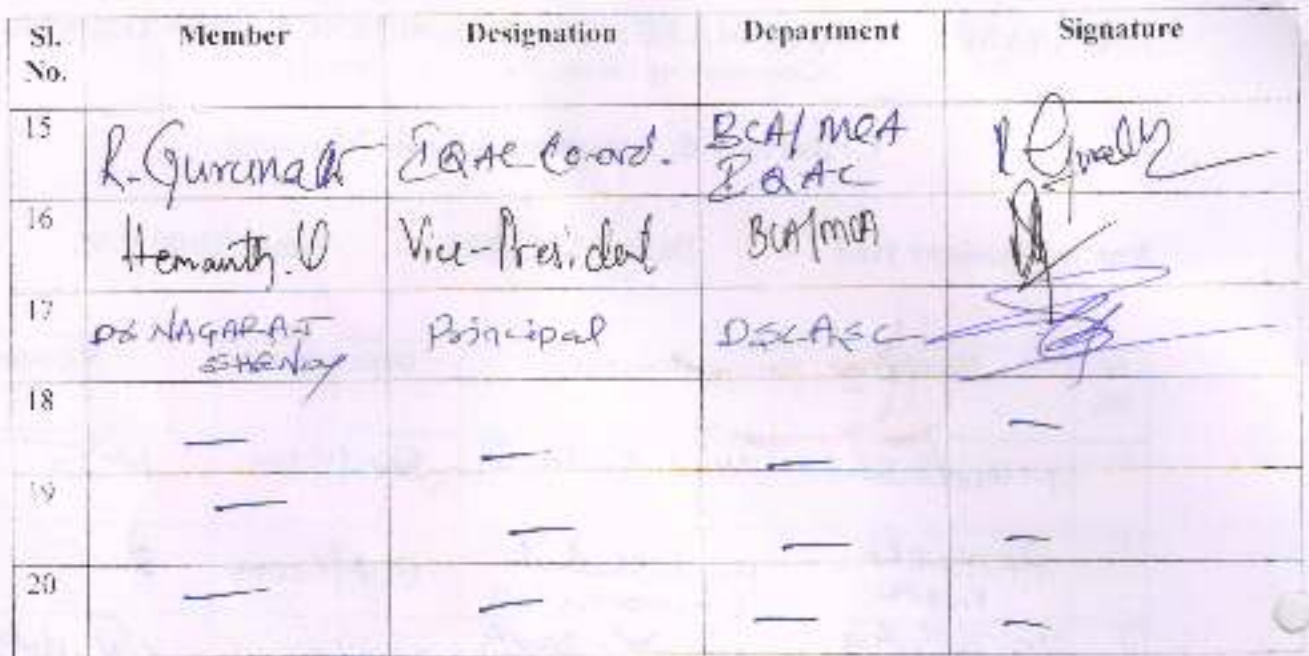 Sl. No. Member Designation Department Signature
15 R. IQAC Co-ord. BCA/MCA
IQAC
16 Hemanth. V Vice-President BCA/MCA
17 Dr NAGARAJ Principal DSCASC
SHENOY
18 — — — —
19 — — — —
20 — — — —